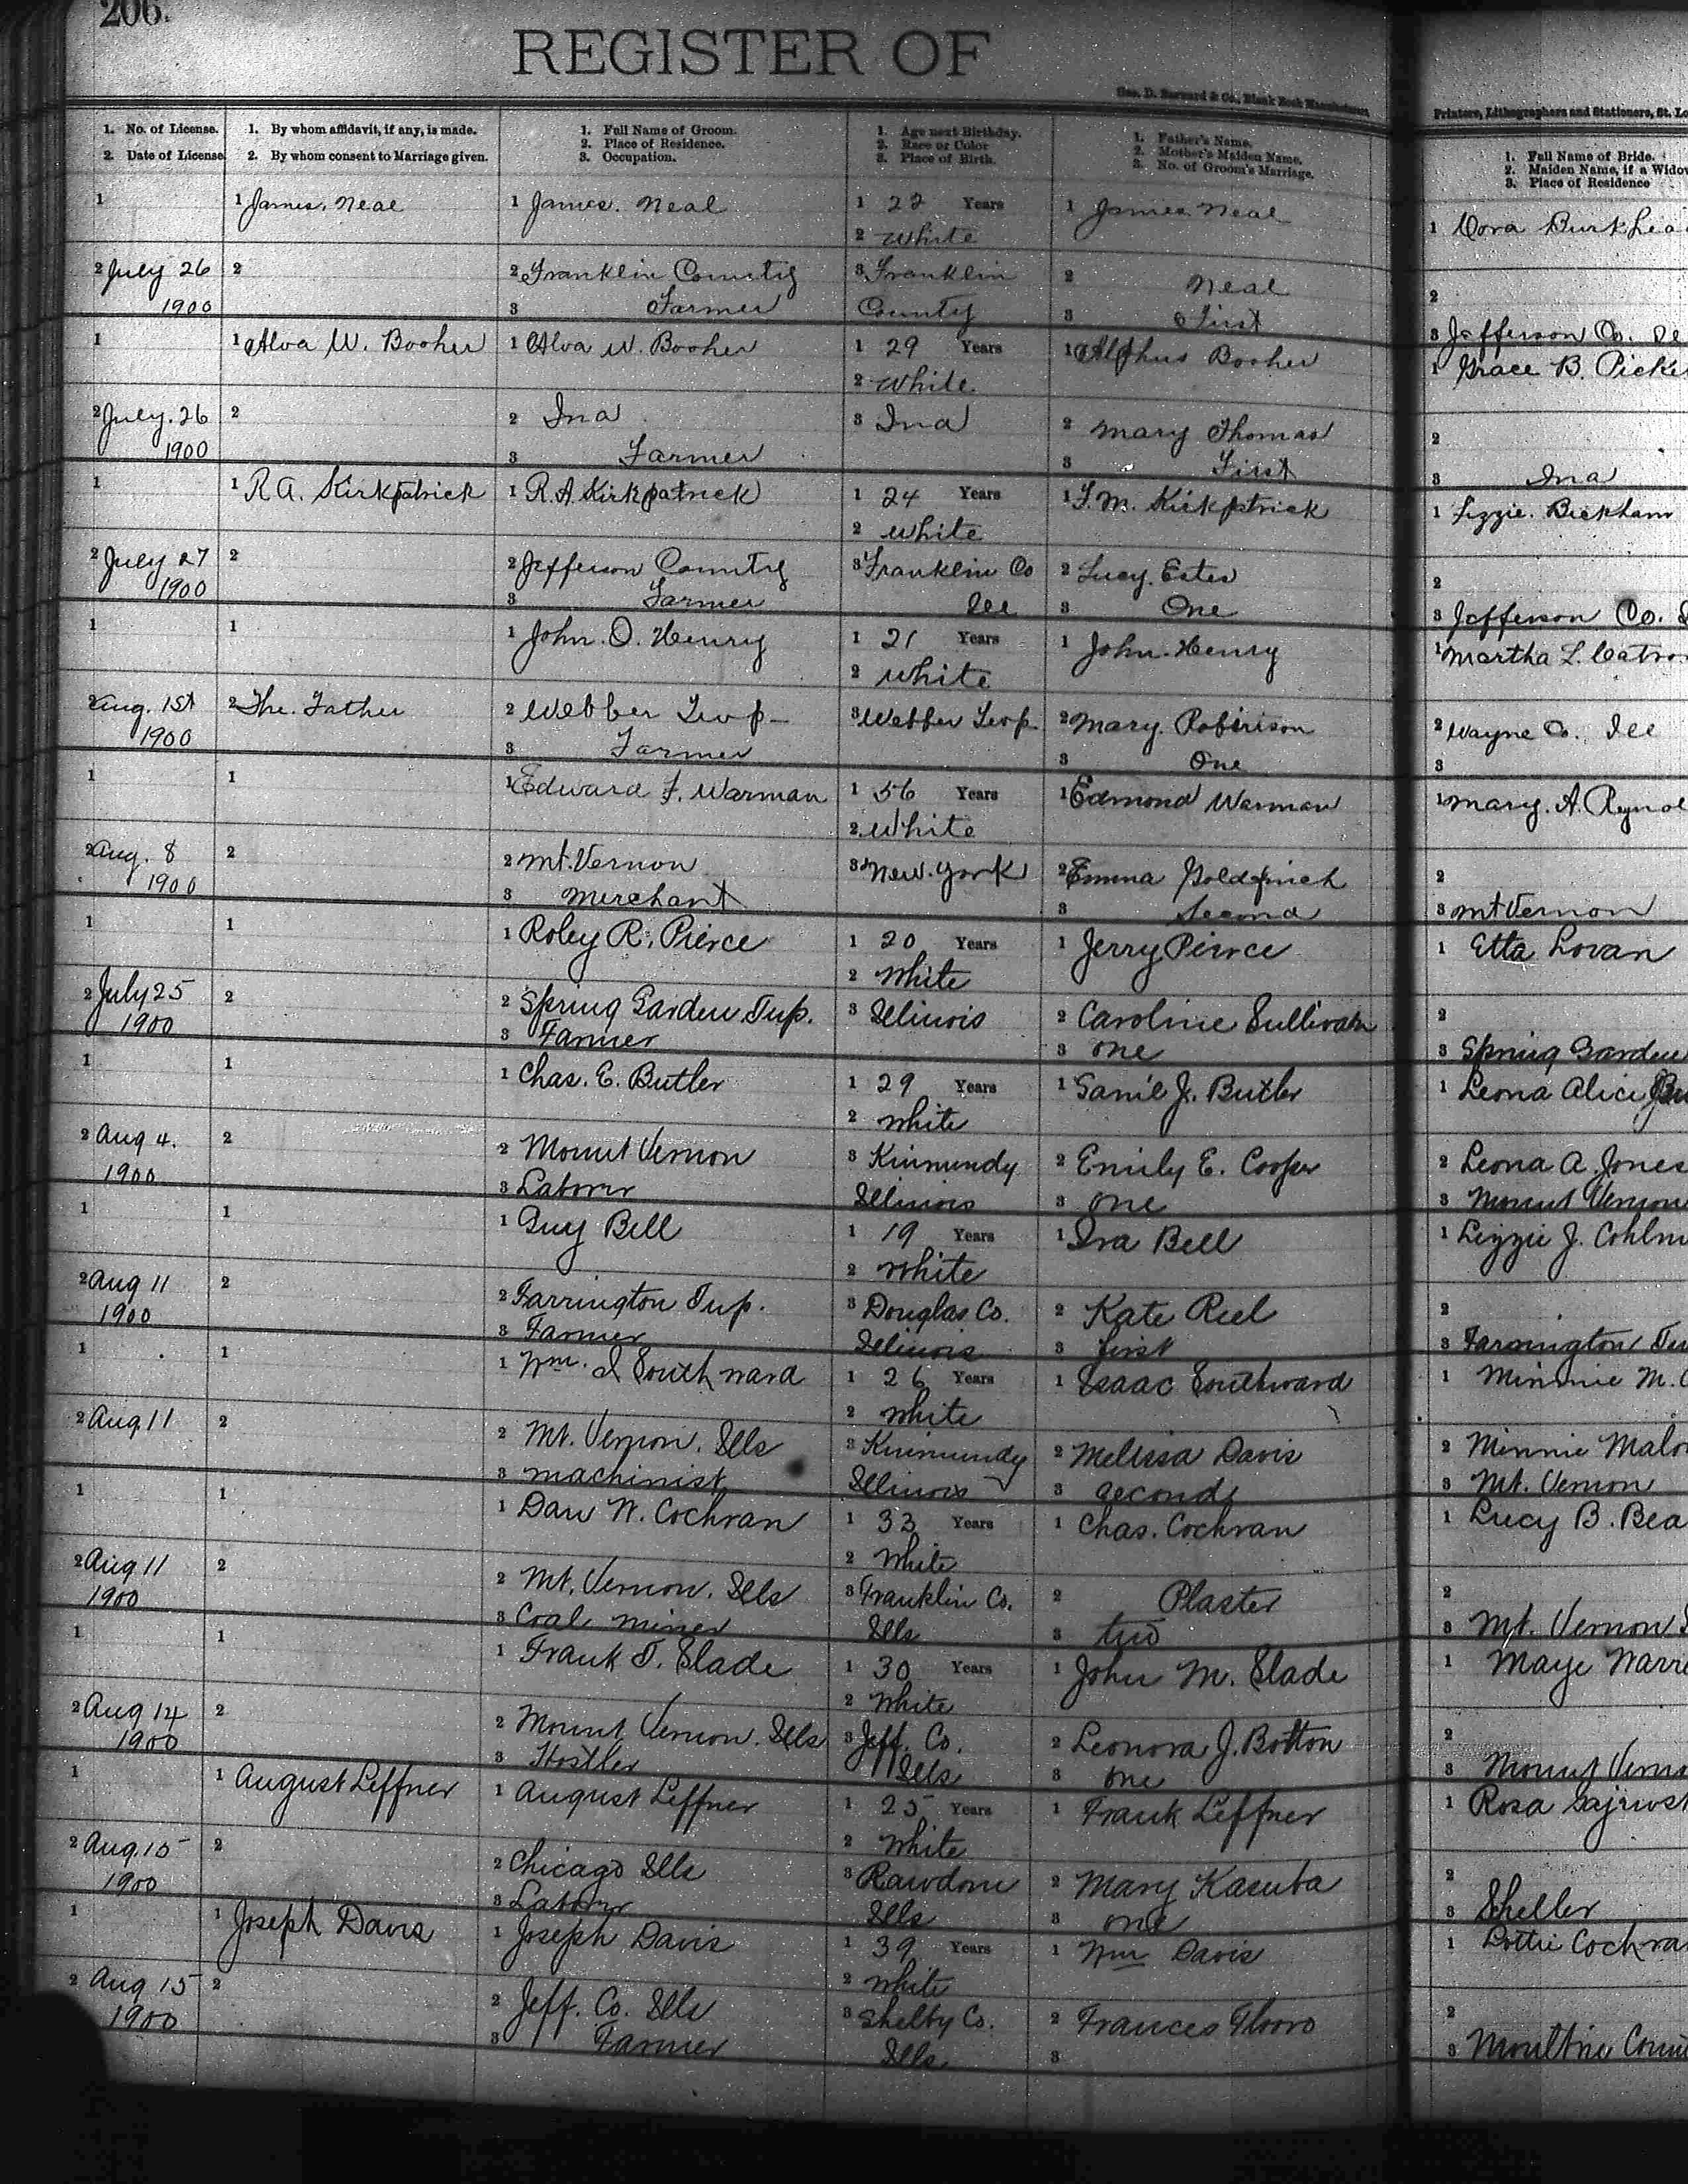 206.
REGISTER OF
Geo. D. Barnard & Co., Blank Book Manufacturers,
Printers, Lithographers and Stationers, St. Lo
1. No. of License.
2. Date of License.
1. By whom affidavit, if any, is made.
2. By whom consent to Marriage given.
1. Full Name of Groom.
2. Place of Residence.
3. Occupation.
1. Age next Birthday.
2. Race or Color
3. Place of Birth.
1. Father's Name.
2. Mother's Maiden Name.
3. No. of Groom's Marriage.
1. Full Name of Bride.
2. Maiden Name, if a Widow
3. Place of Residence
1 1 James. Neal 1 James. Neal 1 22 Years 1 James Neal 1 Cora
2 White
2 July 26 2 2 Franklin County 3 Franklin 2 Neal 2
1900 3 Farmer County 3 First 3 Jefferson Co. Ill
1 1 Alva W. Booher 1 Alva W. Booher 1 29 Years 1 Alphus Booher 1 Grace B. Picke
2 White
2 July. 26 2 2 Ina 3 Ina 2 Mary Thomas 2
1900 3 Farmer 3 First 3 Ina
1 1 R A. Kirkpatrick 1 R. A Kirkpatrick 1 24 Years 1 Kirkptrick 1 Lizzie. Bickham
2 White
2 July 27 2 2 Jefferson County 3 Franklin Co 2 Lucy. Estes 2
1900 3 Farmer Ill 3 One 3 Jefferson Co.
1 1 1 John. O. Henry 1 21 Years 1 John. Henry 1 Martha L. Catro
2 White
2 Aug. 1st 2 The. Father 2 Webber Twp 3 Webber Twp. 2 Mary. Robinson 2 Wayne Co. Ill
1900 3 Farmer 3 One 3
1 1 1 Edward F. Warman 1 56 Years 1 Edmond Warman 1 Mary. A. Rynol
2 White
2 Aug. 8 2 2 Mt. Vernon 3 New. York 2 Emma Goldfinch 2
1900 3 Merchant 3 Second 3 Mt Vernon
1 1 1 Roley R. Pierce 1 20 Years 1 Jerry Peirce 1 Etta Lovan
2 White
2 July 25 2 2 Spring Garden Twp. 3 Illinois 2 Caroline Sullivan 2
1900 3 Farmer 3 one 3 Spring Garden
1 1 1 Chas. E. Butler 1 29 Years 1 J. Butler 1 Leona Alice
2 White
2 Aug 4. 2 2 Mount Vernon 3 Kinmundy 2 Emily E. Cooper 2 Leona A. Jones
1900 3 Laborer Illinois 3 one 3 Mount Vernon
1 1 1 Guy Bell 1 19 Years 1 Ira Bell 1 Lizzie J. Cohlm
2 White
2 Aug 11 2 2 Farrington Twp. 3 Douglas Co. 2 Kate Reel 2
1900 3 Farmer Illinois 3 first 3 Farrington Tw
1 1 1 Wm. I Southward 1 26 Years 1 Isaac Southward 1 Minnie M. C
2 White
2 Aug. 11 2 2 Mt. Vernon. Ills 3 Kinmundy 2 Melissa Davis 2 Minnie Malo
3 machinist Illinois 3 second 3 Mt. Vernon
1 1 1 Dan W. Cochran 1 33 Years 1 Chas. Cochran 1 Lucy B. Bea
2 White
2 Aug 11 2 2 Mt. Vernon. Ills 3 Franklin Co. 2 Plaster 2
1900 3 Coal miner Ills 3 two 3 Mt. Vernon
1 1 1 Frank T. Slade 1 30 Years 1 John M. Slade 1 Maye Warre
2 White
2 Aug 14 2 2 Mount Vernon. Ills 3 Jeff. Co. 2 Leonora J. Botton 2
1900 3 Hostler Ills 3 one 3 Mount Verno
1 1 August Leffner 1 August Leffner 1 25 Years 1 Frank Leffner 1 Rosa
2 White
2 Aug. 15 2 2 Chicago Ills 3 2 Mary Kasuba 2
1900 3 Laborer Ills 3 one 3 Sheller
1 1 Joseph Davis 1 Joseph Davis 1 39 Years 1 Wm Davis 1 Lottie Cochra
2 White
2 Aug 15 2 2 Jeff. Co. Ills 3 Shelby Co. 2 Frances 2
1900 3 Farmer Ills 3 3 Moultrie Coun